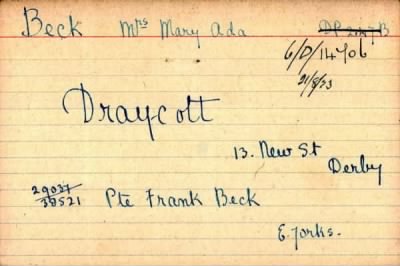 Beck Mrs Mary Ada
6/D/14706
21/8/33
Draycott
13. New St
Derby
29037
38521 Pte Frank Beck
E. Yorks.